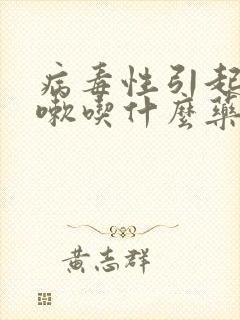 病毒性引起
嗽喫什麼藥
黃志群